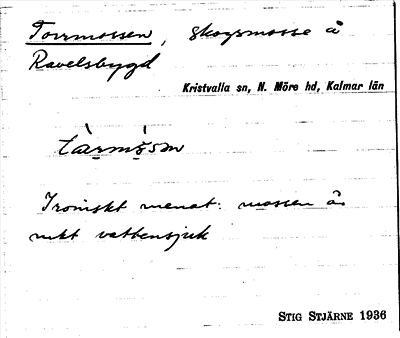 Torrmossen, skogsmosse å
Ravelsbygd
Kristvalla sn, N. Möre hd, Kalmar län
Ironiskt menat: mossen är
mkt vattensjuk
STIG STJÄRNE 1936